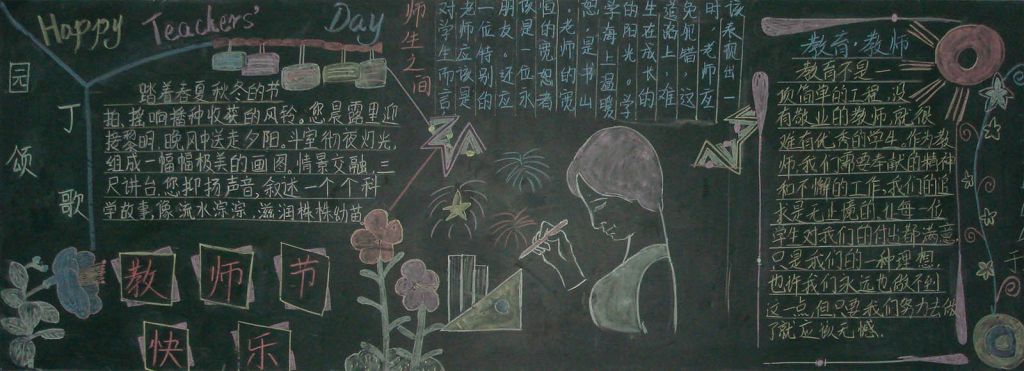 Happy Teachers' Day
园丁颂歌
踏着春夏秋冬的节
拍,摇响播种收获的风铃。您晨露里迎
接黎明,晚风中送走夕阳。斗室彻夜灯光,
组成一幅幅极美的画图。情景交融,三
尺讲台,您抑扬声音,叙述一个个科
学故事,像流水淙淙,滋润株株幼苗
教师节
快乐
师生之间
对学生而言
老师应该是
一位特别的
朋友。还应
该是一位永
恒的宽恕者
,老师的宽
恕,是书山
学海上温暖
的阳光。学
生在成长的
道路上,难
免犯错,这
时,老师应
该表现出一
教育·教师
教育不是一
项简单的工程,没
有敬业的教师,就很
难有优秀的学生。作为教
师,我们需要奉献的精神
和不懈的工作,我们的追
求是无止境的,让每一位
学生对我们的付出都满意,
只是我们的一种理想,
也许我们永远也做不到
这一点,但只要我们努力去做
了就应该无憾。